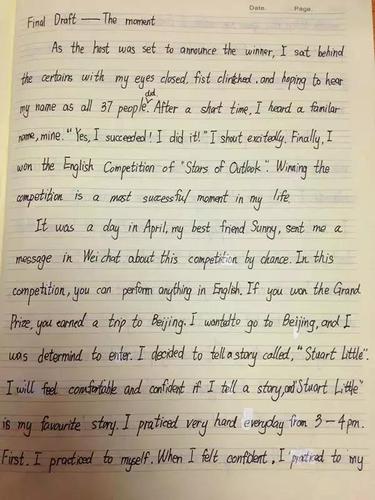 Date.      Page.
Final Draft — The moment
As the host was set to announce the winner, I sat behind
the certains with my eyes closed, fist clinched, and hoping to hear
my name as all 37 people did. After a short time, I heard a familar
name, mine. "Yes, I succeeded! I did it!" I shout excitedly. Finally, I
won the English Competition of "Stars of Outlook". Winning the
competition is a most successful moment in my life.
It was a day in April, my best friend Sunny, sent me a
message in Wei chat about this competition by chance. In this
competition, you can perform anything in English. If you won the Grand
Prize, you earned a trip to Beijing. I wanted to go to Beijing, and I
was determind to enter. I decided to tell a story called, "Stuart Little".
I will feel comfortable and confident if I tell a story, and "Stuart Little"
is my favourite story. I praticed very hard everyday from 3-4pm.
First. I practiced to myself. When I felt confident, I practiced to my